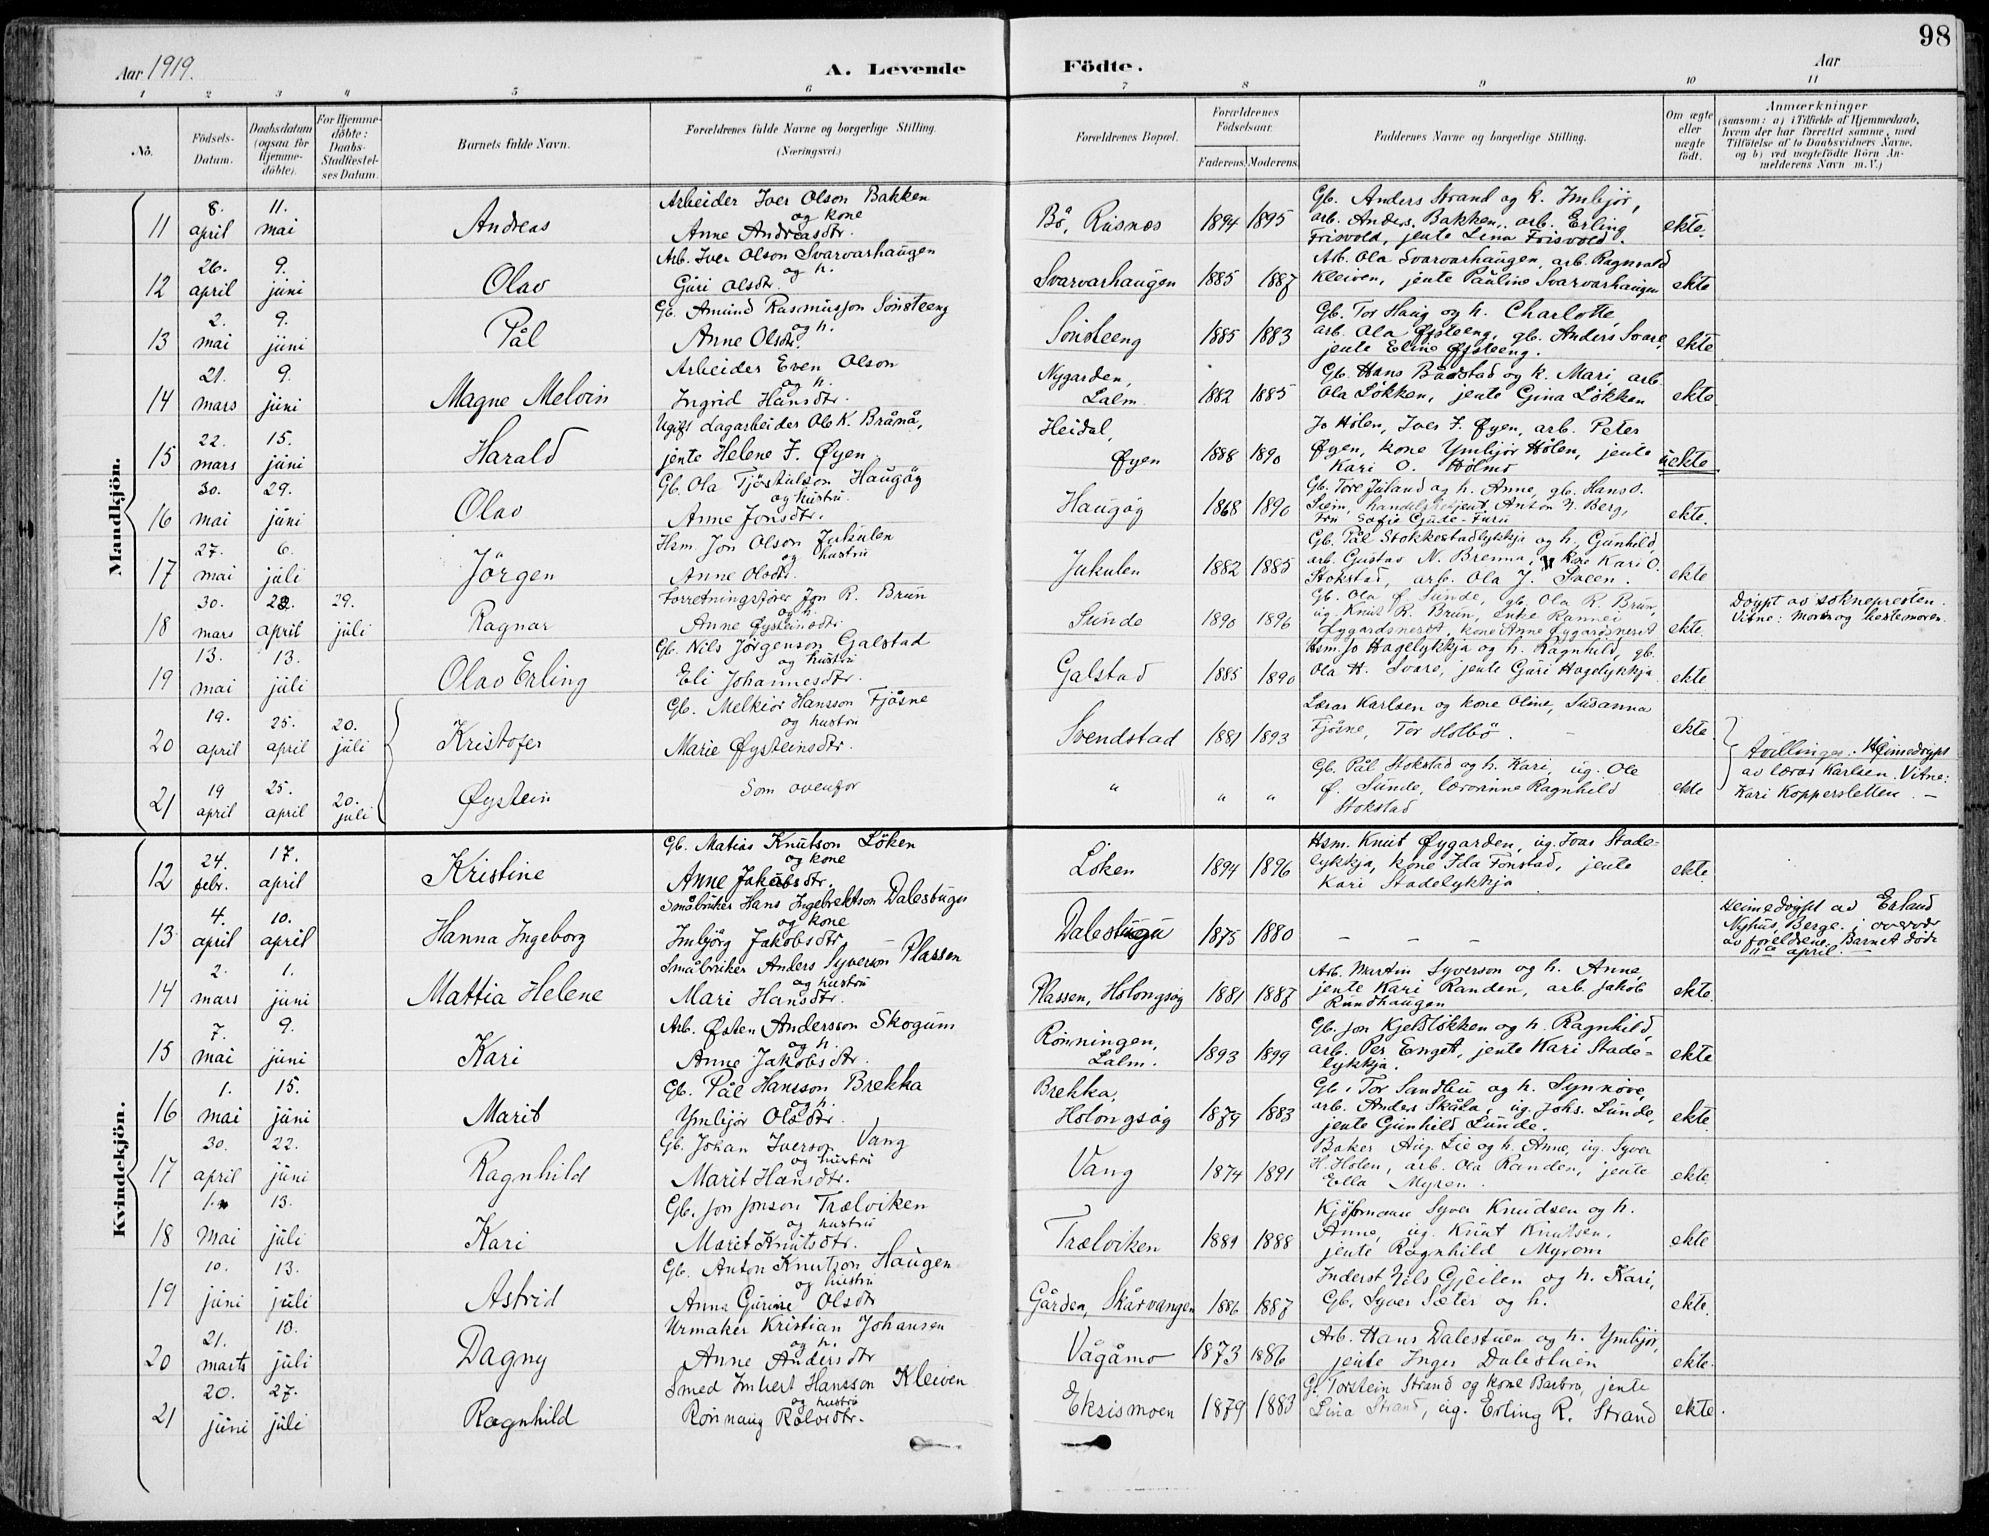 98
Aar 1919.
A. Levende Födte.
Aar
1 2 3 4 5 6 7 8 9 10 11
No.
Födsels-Datum.
Daabsdatum (ogsaa for Hjemme-döbte).
For Hjemme-döbte: Daabs-Stadfæstel-ses Datum.
Barnets fulde Navn.
Forældrenes fulde Navne og borgerlige Stilling. (Næringsvei.)
Forældrenes Bopæl.
Forældrenes Födselsaar.
Faderens. Moderens.
Faddernes Navne og borgerlige Stilling.
Om ægte eller uægte födt.
Anmærkninger
(saasom: a) i Tilfælde af Hjemmedaab,
hvem der har forrettet samme, med
Tilföielse af to Daabsvidners Navne,
og b) ved uægtefödte Börn An-
melderens Navn m. V.)
Mandkjön.
11 8. april 11. mai Andreas Arbeider Iver Olson Bakken og kone Anne Andreasdtr. Bö, Risnes 1894 1895 Gb. Anders Strand og k. Imbjör, arb. Anders Bakken, arb. Erling Frisvold, jente Lina Frisvold. ekte.
12 26. april 9. juni Olav Arb. Iver Olson Svarvarhaugen og h. Guri Olsdtr. Svarvarhaugen 1885 1887 Arb. Ola Svarvarhaugen, arb. Ragnvald Kleiven, jente Pauline Svarvarhaugen ekte
13 2. mai 9. juni Pål Gb. Amund Rasmusson Sønsteeng og h. Anne Olsdtr. Sønsteeng 1885 1883 Gb. Tor Haug og h. Charlotte arb. Ola Øfsteeng, gb. Anders Svare, jente Eline Øfsteeng. ekte
14 21. mars 9. juni Magne Melvin Arbeider Even Olson og h. Ingrid Hansdtr. Nygarden, Lalm. 1882 1885 Gb. Hans Bådstad og k. Mari, arb. Ola Løkken, jente Gina Løkken ekte.
15 22. mars 15. juni Harald Ugift dagarbeider Ole K. Bråmå, jente Helene I. Øyen Heidal, Øyen 1888 1890 Jo Hölen, Iver I. Øyen, arb. Peter Øyen, kone Ymbjör Hölen, jente Kari O. Holmo uekte
16 30. mai 29. juni Olav Gb. Ola Tjöstulson Haugög og hustru Anne Jonsdtr. Haugög 1868 1890 Gb. Tore Juland og h. Anne, gb. Hans O. Siem, handelsbetjent Anton N. Berg, Fru Sofie Gude-Furu ekte.
17 27. mai 6. juli Jörgen Hsm. Jon Olson Jukulen og hustru Anne Olsdtr. Jukulen 1882 1885 Gb. Pål Stokkestadlykkja og h. Gunhild, arb. Gustav N. Brenna, kone Kari O. Stokstad, arb. Ola J. Sveen. ekte
18 30. mars 28. april 29. juli Ragnar Forretningsfører Jon R. Brun og h. Anne Øysteinsdtr. Sunde 1890 1896 Gb. Ola Ø. Sunde, gb. Ola R. Brun, ug. Knut R. Brun, enke Rannei Øygardsneret, kone Anne Øygardsneret ekte. Döypt av soknepresten. Vitne: Moren og hestemoren.
19 13. mai 13. juli Olav Erling Gb. Nils Jörgenson Galstad og hustru Eli Johannesdtr. Galstad 1885 1890 Hsm. Jo Hagelykkja og h. Ragnhild, gb. Ola H. Svare, jente Guri Hagelykkja. ekte
20 19. april 25. april 20. juli Kristofer Gb. Melkior Hansson Fjösne og hustru Marie Øysteinsdtr. Svendstad 1881 1893 Lærar Karlsen og kone Oline, Susanna Fjösne, Tor Holbö. ekte.
21 19 april 25. april 20. juli Øystein Som ovenfor " " " Gb. Pål Stokstad og h. Kari, ug. Ole Ø. Sunde, lærarinne Ragnhild Stokstad ekte Tvillinger. Heimedöypt av lærar Karlsen. Vitne: Kari Koppersletten. —
Kvindekjön.
12 24. febr. 17. april Kristine Gb. Matias Knutson Löken og kone Anne Jakobsdtr. Löken 1894 1896 Hsm. Knut Øygarden, ug. Ivar Stade-lykkja, kone Ida Fonstad, jente Kari Stadelykkja ekte.
13 4. april 10. april Hanna Ingeborg Småbruker Hans Ingebrektson Dalestugu og kone Imbjörg Jakobsdtr. Dalestugu 1875 1880 — — — Heimedöypt av Erland Nyhus, Berge, i overvær av foreldrene. Barnet döde 11te april. —
14 2. mars 1. juni Mattia Helene Småbruker Anders Syverson Plassen og hustru Mari Hansdtr. Plassen, Holongsög 1881 1887 Arb. Martin Syverson og h. Anne, jente Kari Randen, arb. Jakob Rundhaugen ekte.
15 7. mai 9. juni Kari Arb. Østen Andersson Skogum og h. Anne Jakobsdtr. Rönningen, Lalm. 1893 1899 Gb. Jon Kjelsløkken og h. Ragnhild, arb. Per Enget, jente Kari Stade-lykkja. ekte
16 1. mai 15. juni Marit Gb. Pål Hansson Brekka og h. Ymbjör Olsdtr. Brekka, Holongsög 1879 1883 Gb. Tor Sandbu og h. Synnöve, arb. Anders Skåla, ug. Johs. Sunde, jente Gunhild Sunde. ekte.
17 30. april 22. juni Ragnhild Gb. Johan Iverson Vang og hustru Marit Hansdtr. Vang 1874 1891 Baker Aug. Lie og h. Anne, ug. Syver H. Holen, arb. Ola Randen, jente Ella Myren. ekte.
18 1. Mai 13. juli Kari Gb. Jon Jonson Trælviken og hustru Marit Knutsdtr. Trælviken 1881 1888 Kjöbmann Syver Knudsen og h. Anne, ug. Knut Knutsen, jente Ragnhild Myrom ekte
19 10. juni 13. juli Astrid Gb. Anton Knutson Haugen og hustru Anna Gurine Olsdtr Gården, Skårvangen 1886 1887 Inderst Nils Gjeilen og h. Kari, Gb. Syver Sæter og h. ekte.
20 21. marts 13. juli Dagny Urmaker Kristian Johansen og h. Anne Andersdtr Vågåmo 1873 1886 Arb. Hans Dalestuen og h. Ymbjör, jente Inger Dalestuen ekte.
21 20. juni 27. juli Ragnhild Smed Imbert Hansson Kleiven og hustru Rönnaug Rolvsdtr. Eksismoen 1879 1883 Gb. Torstein Strand og kone Barbra, jente Lina Strand, ug. Erling R. Strand ekte.